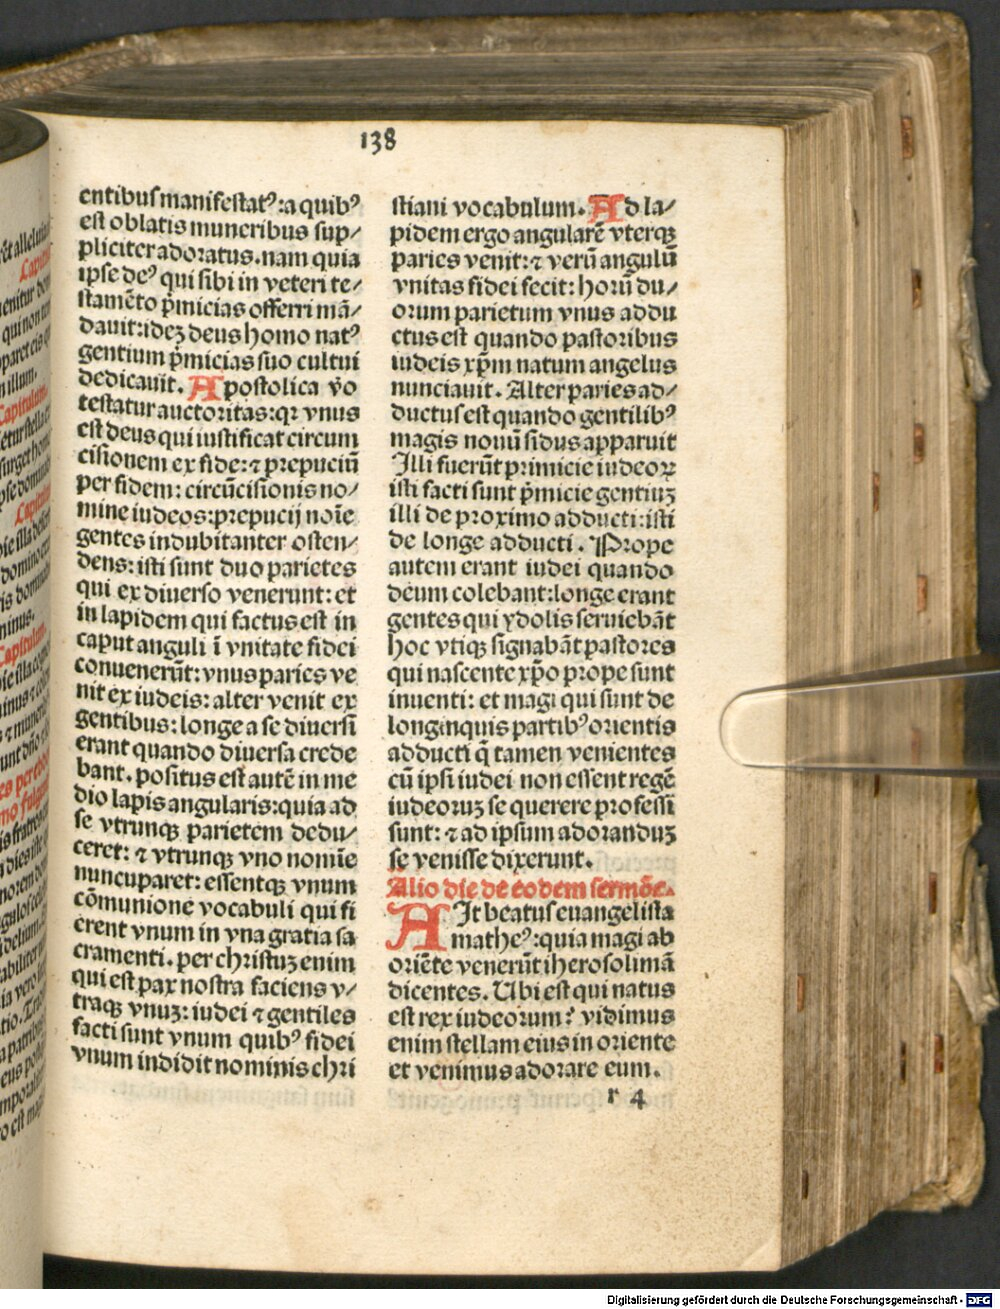 138
entibus manifestatꝰ: a quibꝰ
est oblatis muneribus sup/
pliciter adoratus. nam quia
ipse deꝰ qui sibi in veteri te/
stamēto p̄micias offerri mā/
dauit: ideꝫ deus homo natꝰ
gentium p̄micias suo cultui
dedicauit. Apostolica v̄o
testatur auctoritas: qꝛ vnus
est deus qui iustificat circum
cisionem ex fide: ⁊ prepuciū
per fidem: circūcisionis no/
mine iudeos: prepucij noīe
gentes indubitanter osten/
dens: isti sunt duo parietes
qui ex diuerso venerunt: et
in lapidem qui factus est in
caput anguli ī vnitate fidei
conuenerūt: vnus paries ve
nit ex iudeis: alter venit ex
gentibus: longe a se diuersi
erant quando diuersa crede
bant. positus est autē in me
dio lapis angularis: quia ad
se vtrunqꝫ parietem dedu/
ceret: ⁊ vtrunqꝫ vno nomīe
nuncuparet: essentqꝫ vnum
cōmunione vocabuli qui fi
erent vnum in vna gratia sa
cramenti. per christuꝫ enim
qui est pax nostra faciens v/
traqꝫ vnuꝫ: iudei ⁊ gentiles
facti sunt vnum quibꝰ fidei
vnum indidit nominis chri
stiani vocabulum. Ad la/
pidem ergo angularē vterqꝫ
paries venit: ⁊ verū angulū
vnitas fidei fecit: horū du/
orum parietum vnus addu
ctus est quando pastoribus
iudeis xp̄m natum angelus
nunciauit. Alter paries ad/
ductus est quando gentilibꝰ
magis nouū sidus apparuit
Illi fuerūt primicie iudeoꝝ
isti facti sunt p̄micie gentiuꝫ
illi de proximo adducti: isti
de longe adducti. Prope
autem erant iudei quando
deum colebant: longe erant
gentes qui ydolis seruiebāt
hoc vtiqꝫ signabāt pastores
qui nascente xp̄o prope sunt
inuenti: et magi qui sunt de
longinquis partibꝰ orientis
adducti q̄ tamen venientes
cū ipsi iudei non essent regē
iudeoruꝫ se querere professi
sunt: ⁊ ad ipsum adoranduꝫ
se venisse dixerunt.
Alio die de eodem sermōe.
AIt beatus euangelista
matheꝰ: quia magi ab
oriēte venerūt iherosolimā
dicentes. Ubi est qui natus
est rex iudeorum? vidimus
enim stellam eius in oriente
et venimus adorare eum.
r 4
Digitalisierung gefördert durch die Deutsche Forschungsgemeinschaft - DFG